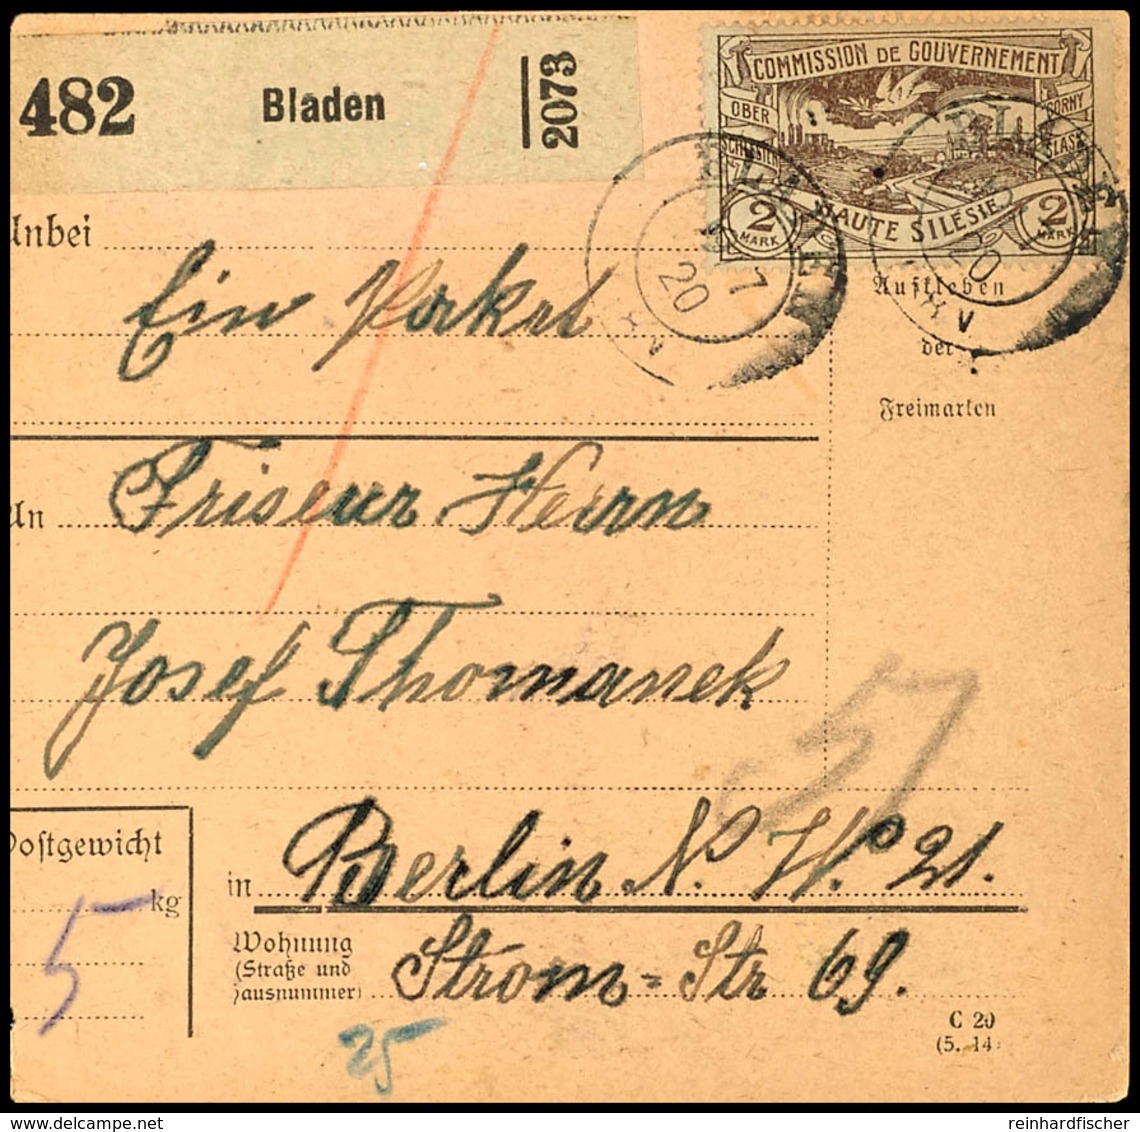 482 Bladen 2073
COMMISSION DE GOUVERNEMENT
OBER SCHLESIEN
GORNY SLASK
HAUTE SILÉSIE
2 MARK
2 MARK
BLADEN
7
20
BLADEN
20
Anbei
Ein Paket
Aufkleben
der
Freimarken
An
Friseur Herrn
Josef Thomanek
57
Postgewicht
kg
5
in Berlin N. W. 21.
Wohnung
(Straße und
Hausnummer)
Strom-Str 69.
25
C 20
(5. 14
reinhardfischer